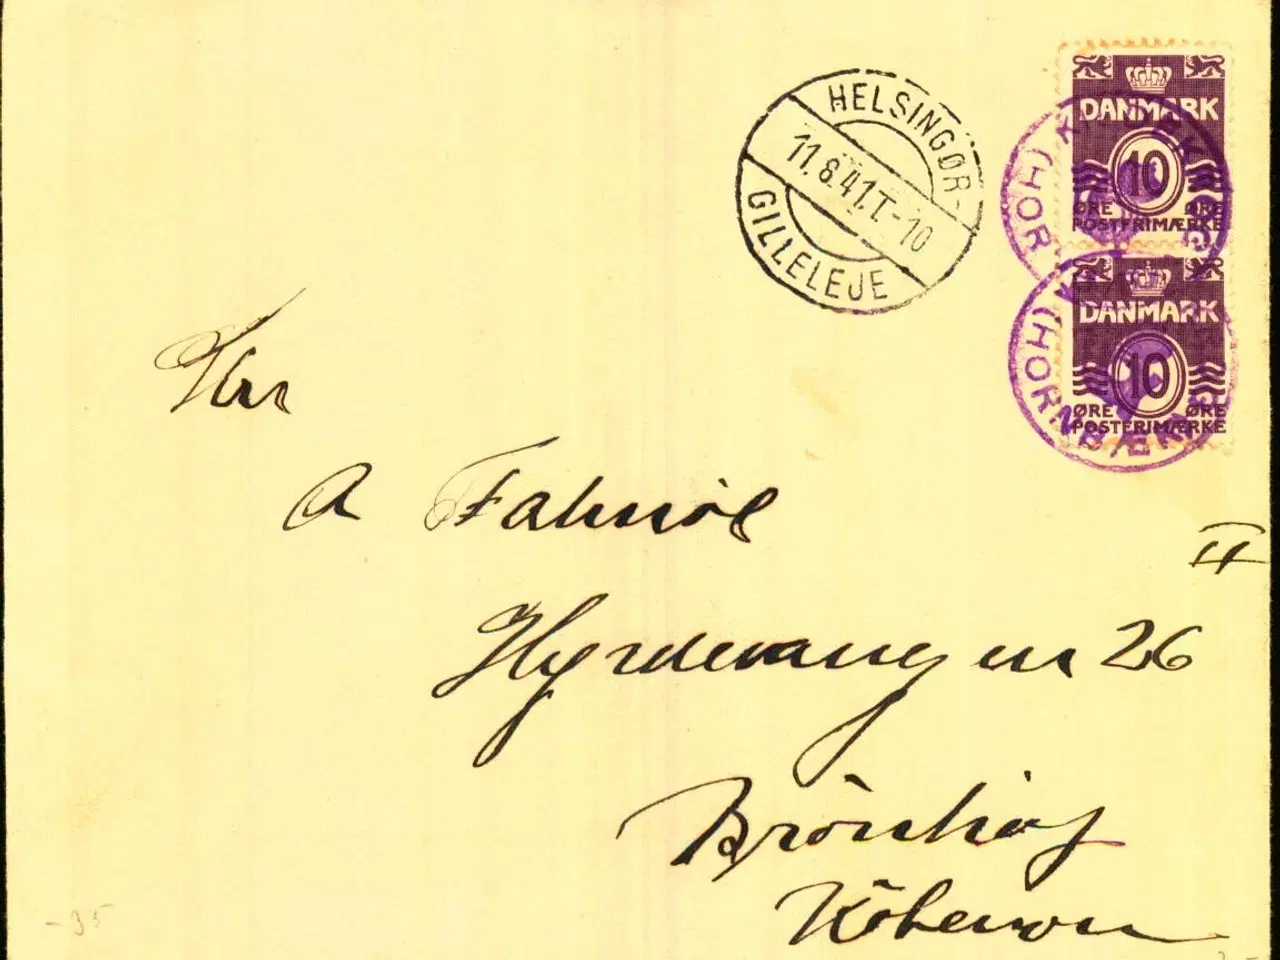 HELSINGØR-
11.8.41.T.-10
GILLELEJE
DANMARK
10
ØRE ØRE
POSTFRIMÆRKE
DANMARK
10
ØRE ØRE
POSTFRIMÆRKE
HORNBÆK
Hr
A Falmøe
II
Hyrdevangen 26
Brönshøj
Köbenvon
-35